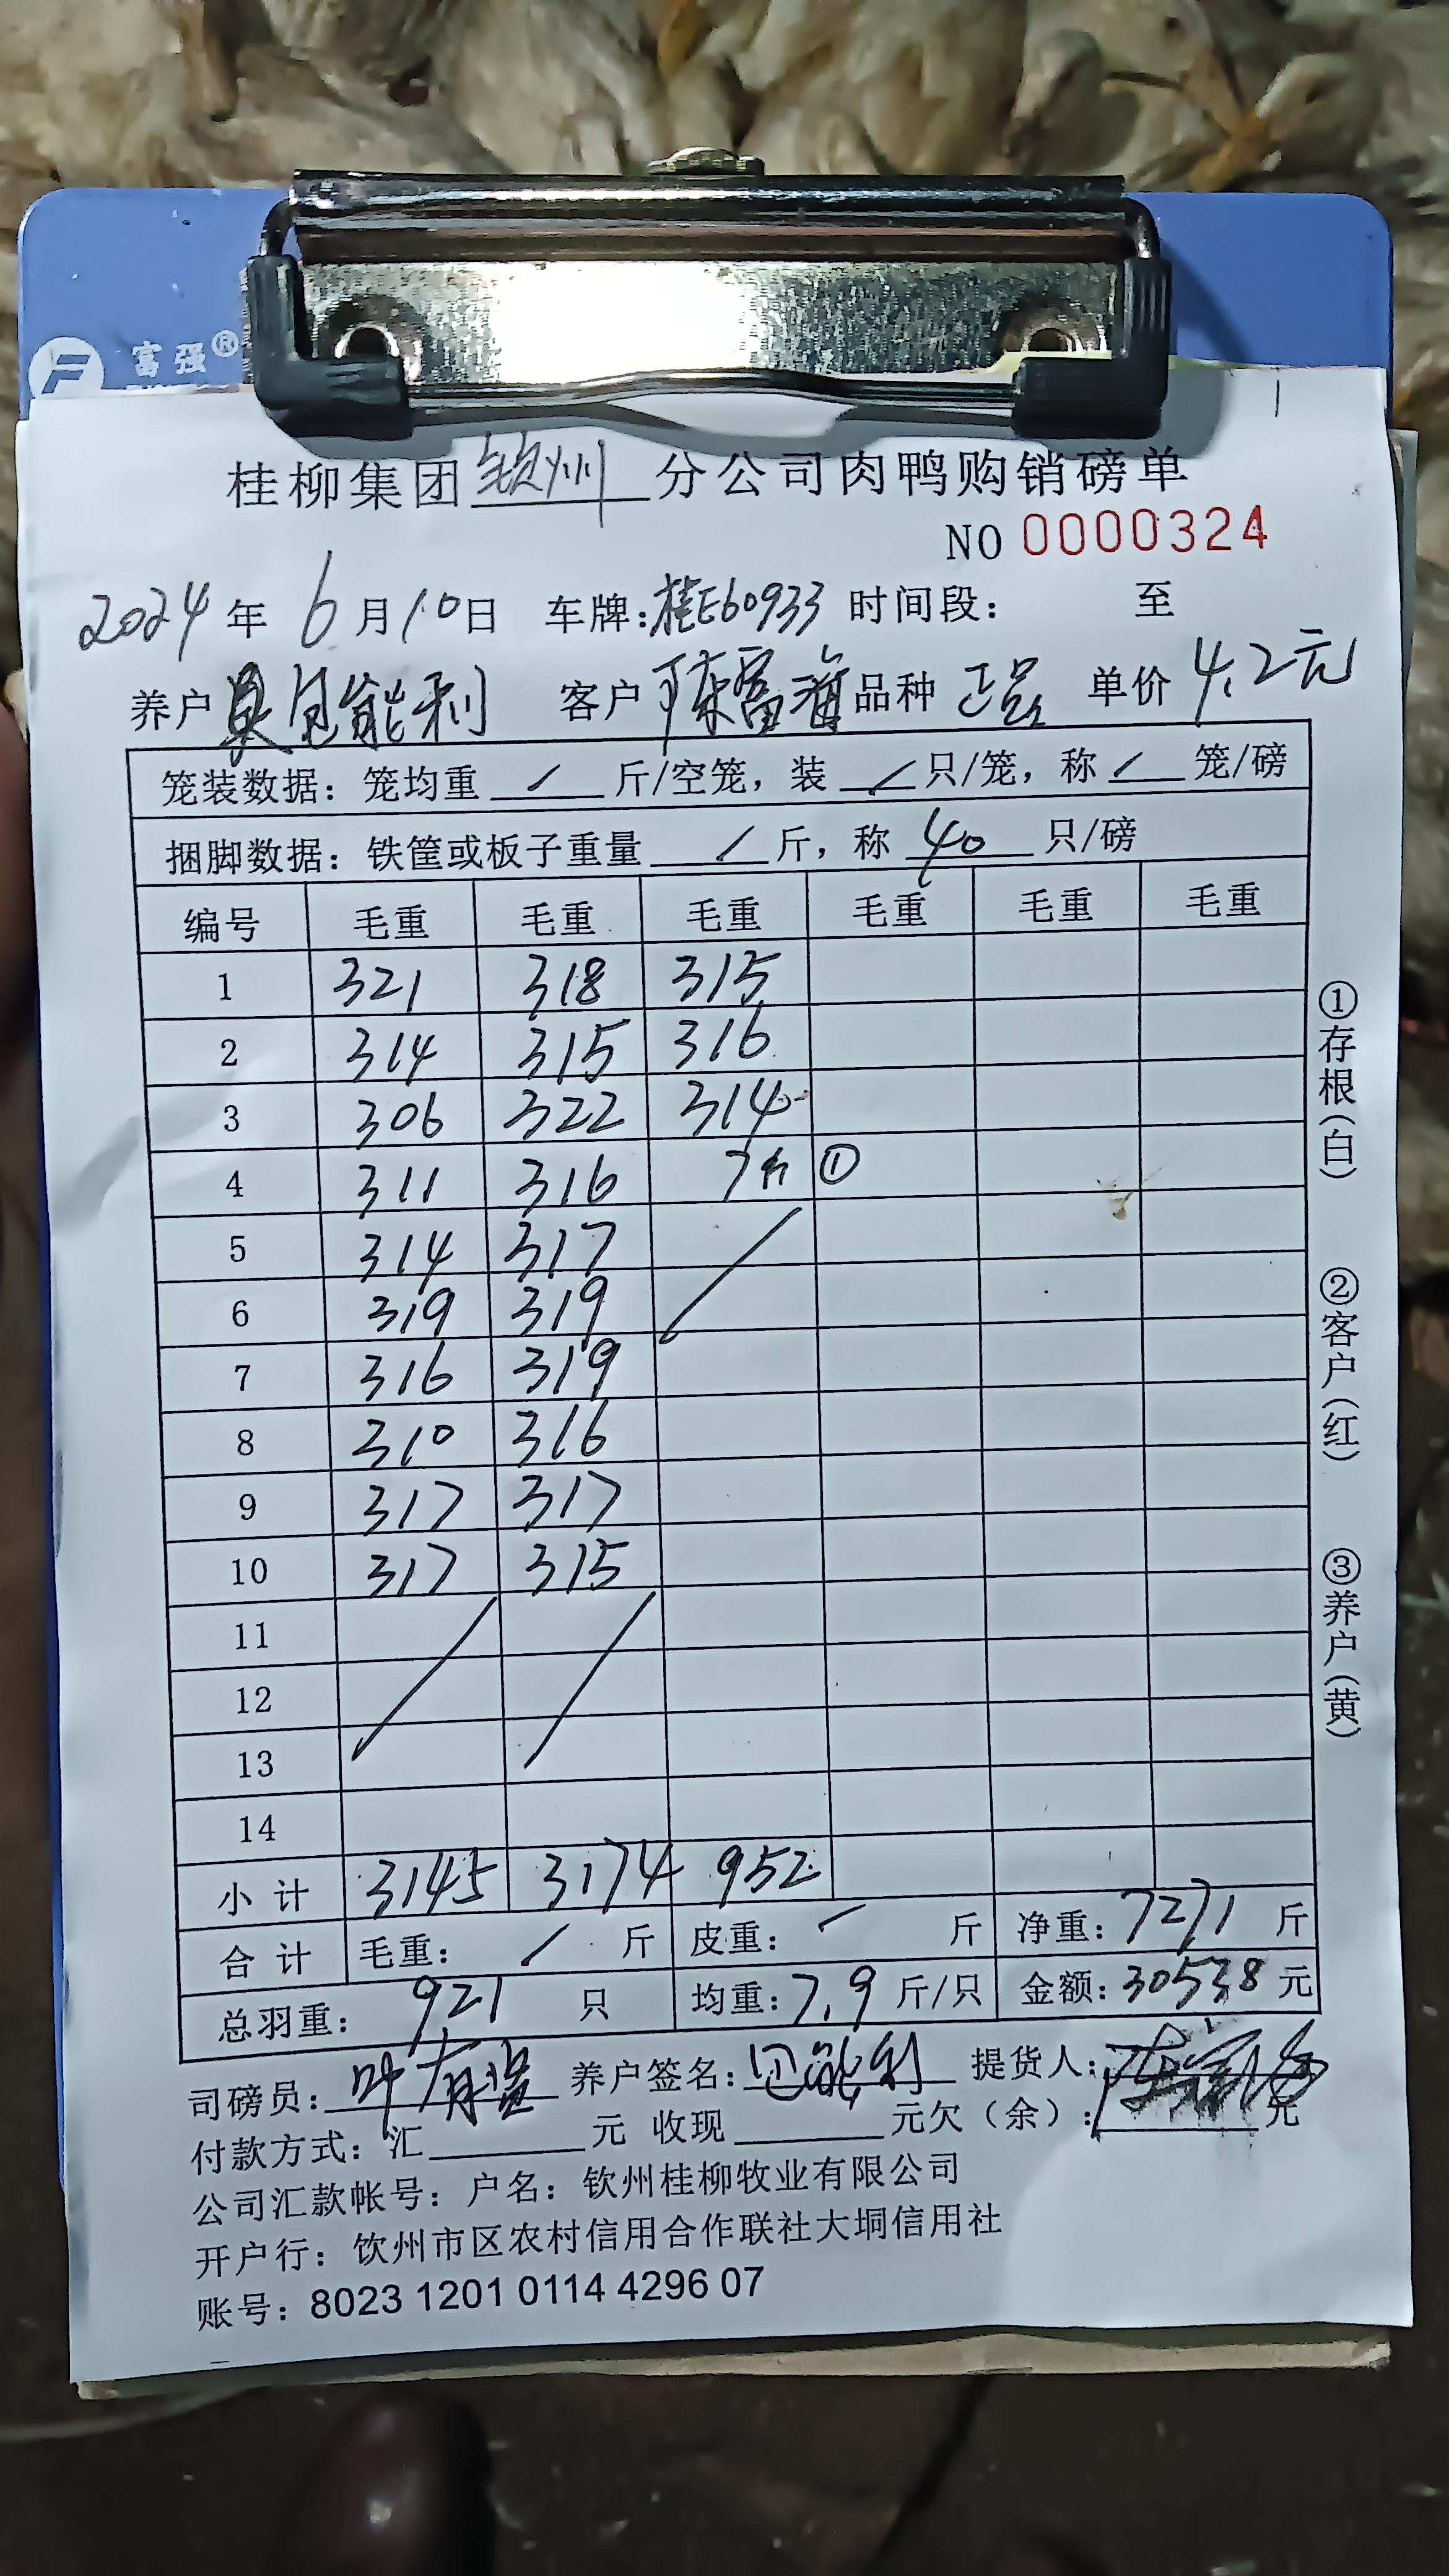 富强®
桂柳集团钦州分公司肉鸭购销磅单
NO 0000324
2024年 6月10日 车牌:桂E60933 时间段: 至
养户 能利 客户 陈富海 品种 单价 4.2元
笼装数据: 笼均重 / 斤/空笼, 装 / 只/笼, 称 / 笼/磅
捆脚数据: 铁筐或板子重量 / 斤, 称 40 只/磅
编号 毛重 毛重 毛重 毛重 毛重 毛重
1 321 318 315
2 314 315 316
3 306 322 314
4 311 316 7 ①
5 314 317
6 319 319
7 316 319
8 310 316
9 317 317
10 317 315
11
12
13
14
小计 3145 3174 952
合计 毛重: / 斤 皮重: / 斤 净重: 7271 斤
总羽重: 921 只 均重: 7.9 斤/只 金额: 30538 元
司磅员: 叶 养户签名: 能利 提货人:
付款方式: 汇 元 收现 元欠(余): 元
公司汇款帐号: 户名: 钦州桂柳牧业有限公司
开户行: 钦州市区农村信用合作联社大垌信用社
账号: 8023 1201 0114 4296 07
①存根(白)
②客户(红)
③养户(黄)